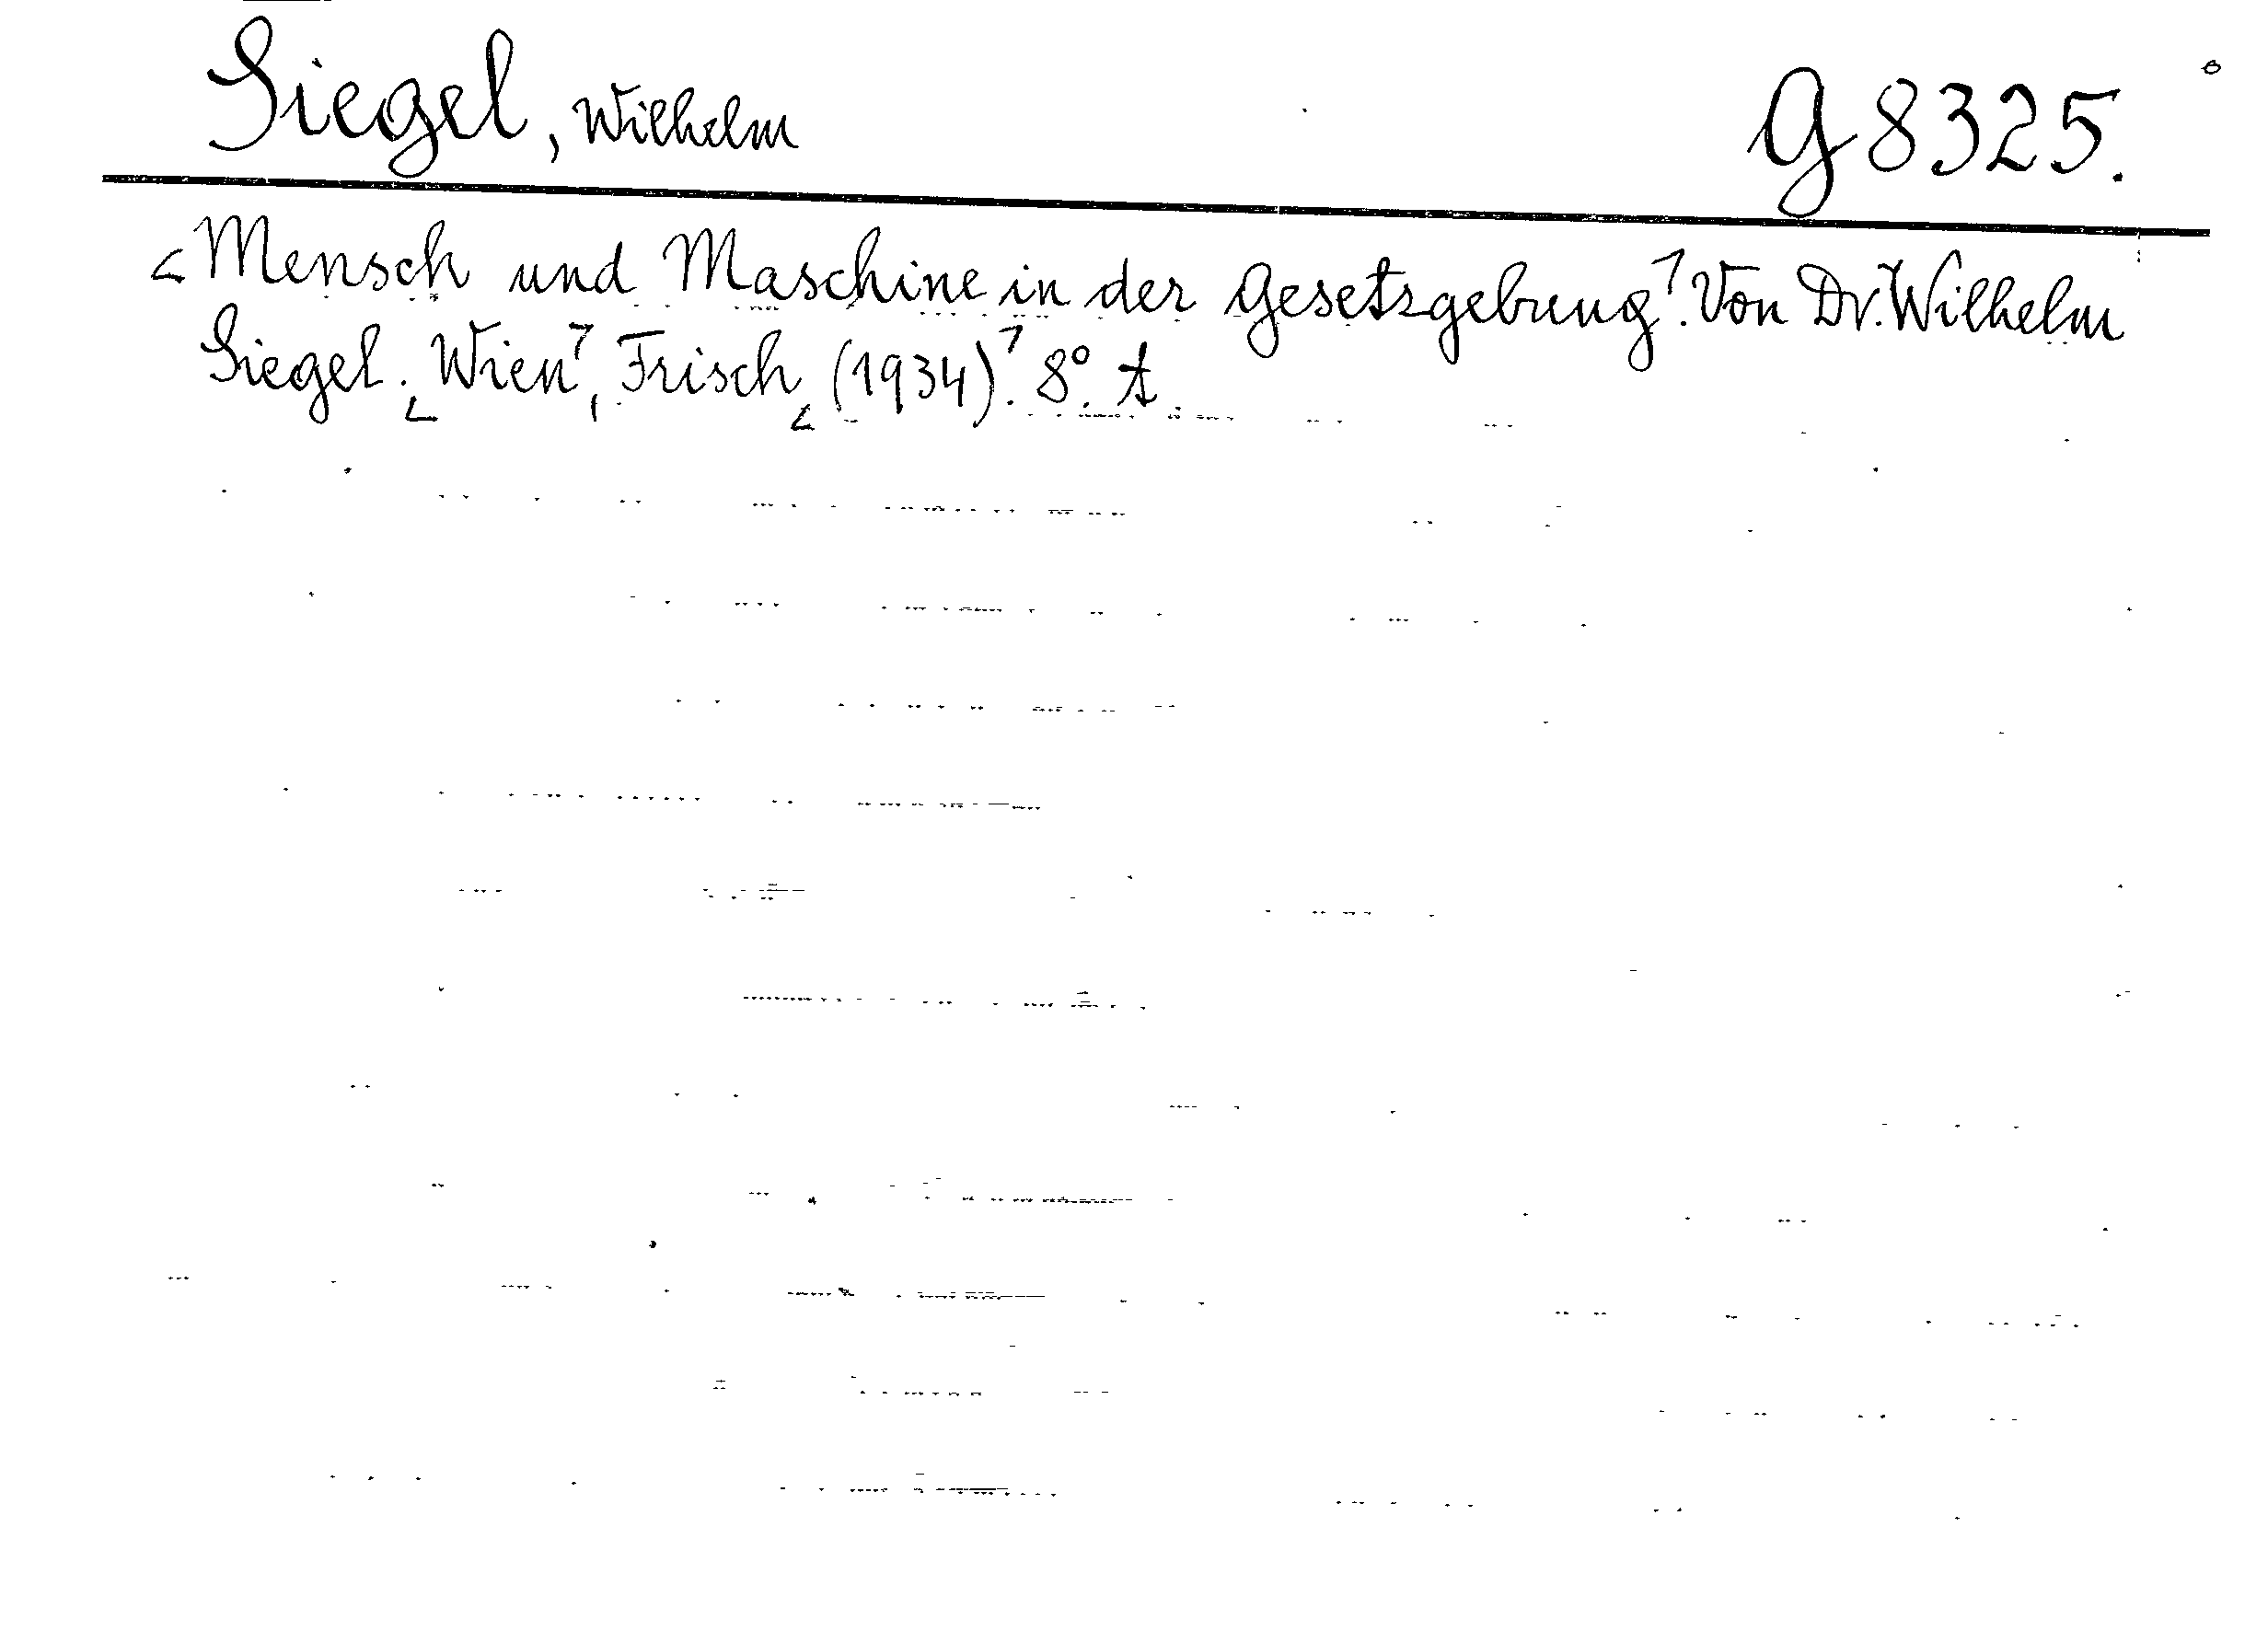 Siegel, Wilhelm G 8325.
<Mensch und Maschine in der Gesetzgebung>. Von Dr. Wilhelm
Siegel. <Wien>, Frisch <(1934)>. 8°. A